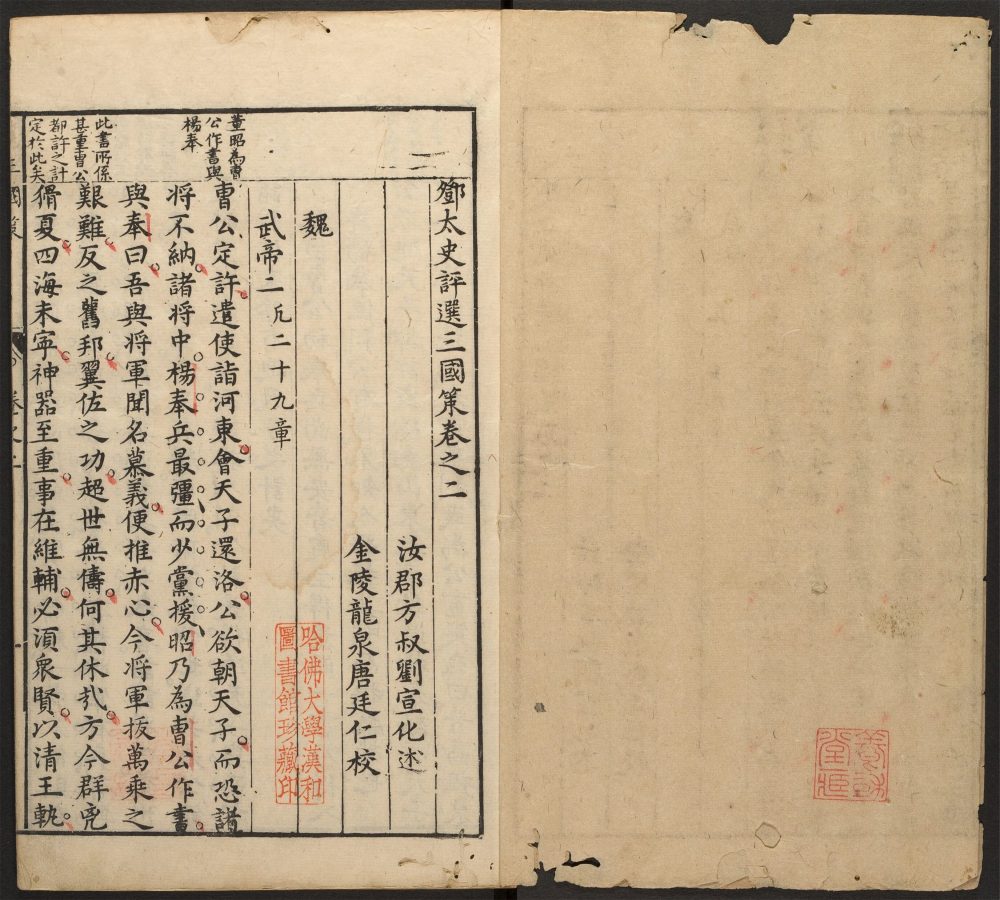 鄧太史評選三國策卷之二
汝郡方叔劉宣化述
金陵龍泉唐廷仁校
魏
武帝二凡二十九章
董昭為曹
公作書與
楊奉
曹公定許遣使詣河東會天子還洛公欲朝天子而恐諸
将不納諸将中楊奉兵最彊而少黨援昭乃為曹公作書
與奉曰吾與将軍聞名慕義便推赤心今将軍拔萬乘之
艱難反之舊邦翼佐之功超世無儔何其休㢤方今群兇
猾夏四海未寜神器至重事在維輔必須衆賢以清王軌
此書所係
甚重曹公
都許之計
定於此矣
哈佛大學漢和
圖書館珍藏印
三國策
卷之二